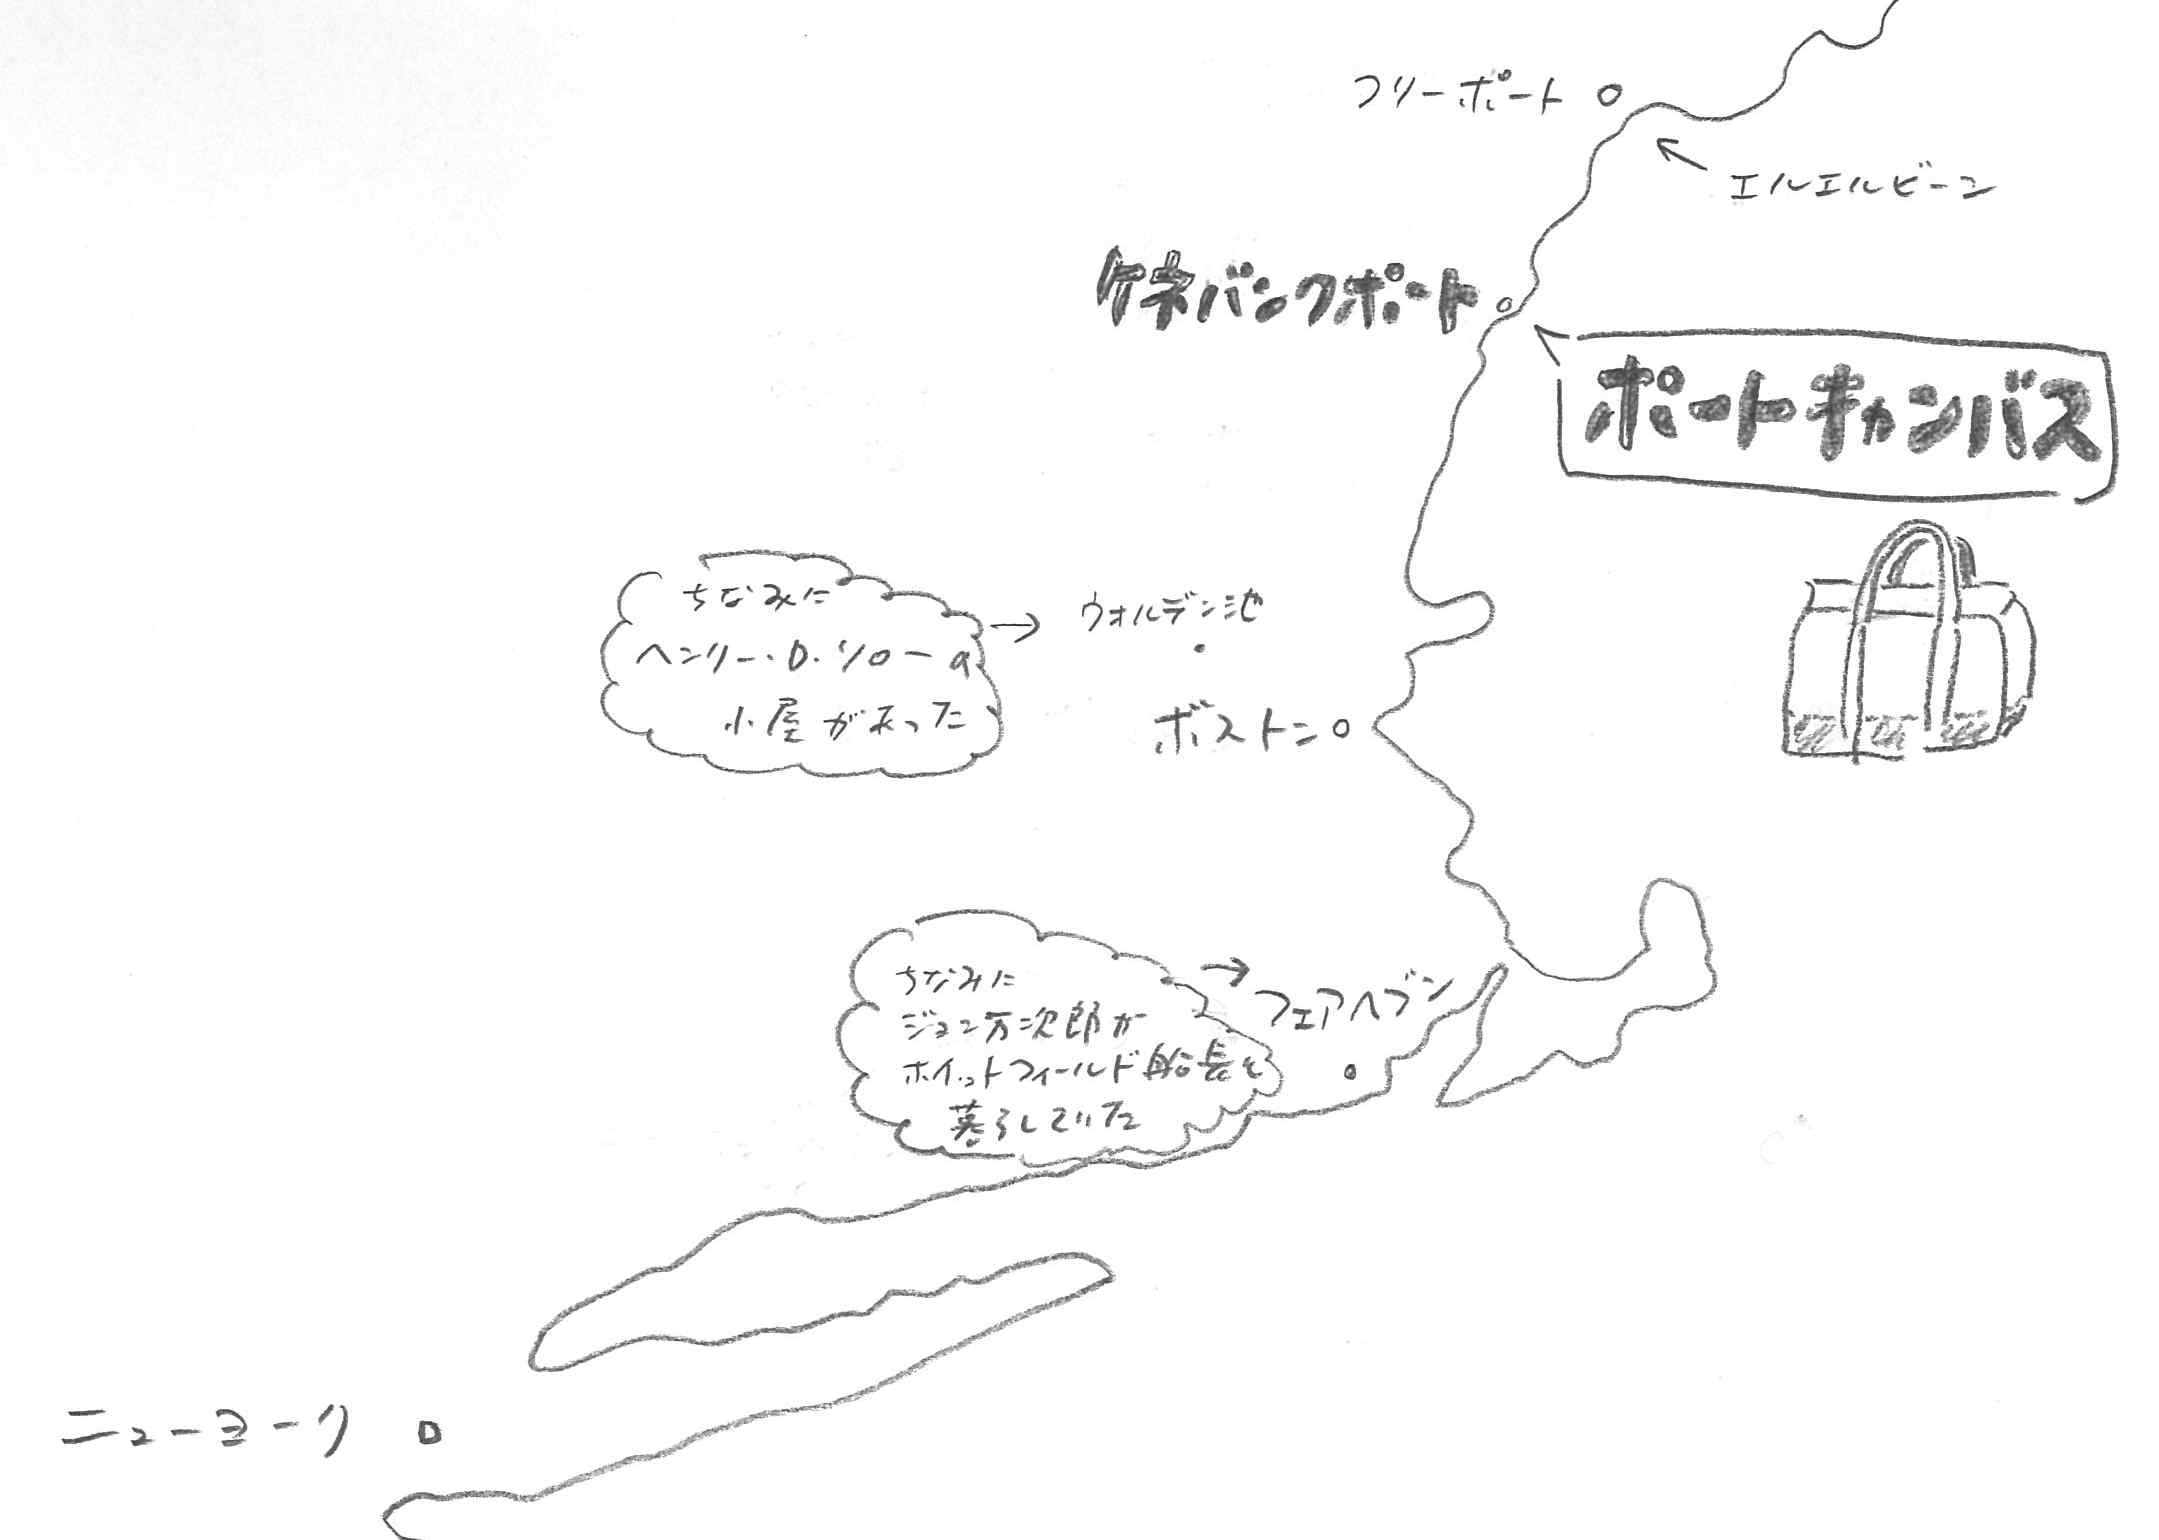 フリーポート
エルエルビーン
ケネバンクポート
ポートキャンバス
ちなみに
ヘンリー・D・ソローの
小屋があった
→ ウォルデン池
ボストン
ちなみに
ジョン万次郎が
ホイットフィールド船長と
暮らしていた
→ フェアヘブン
ニューヨーク